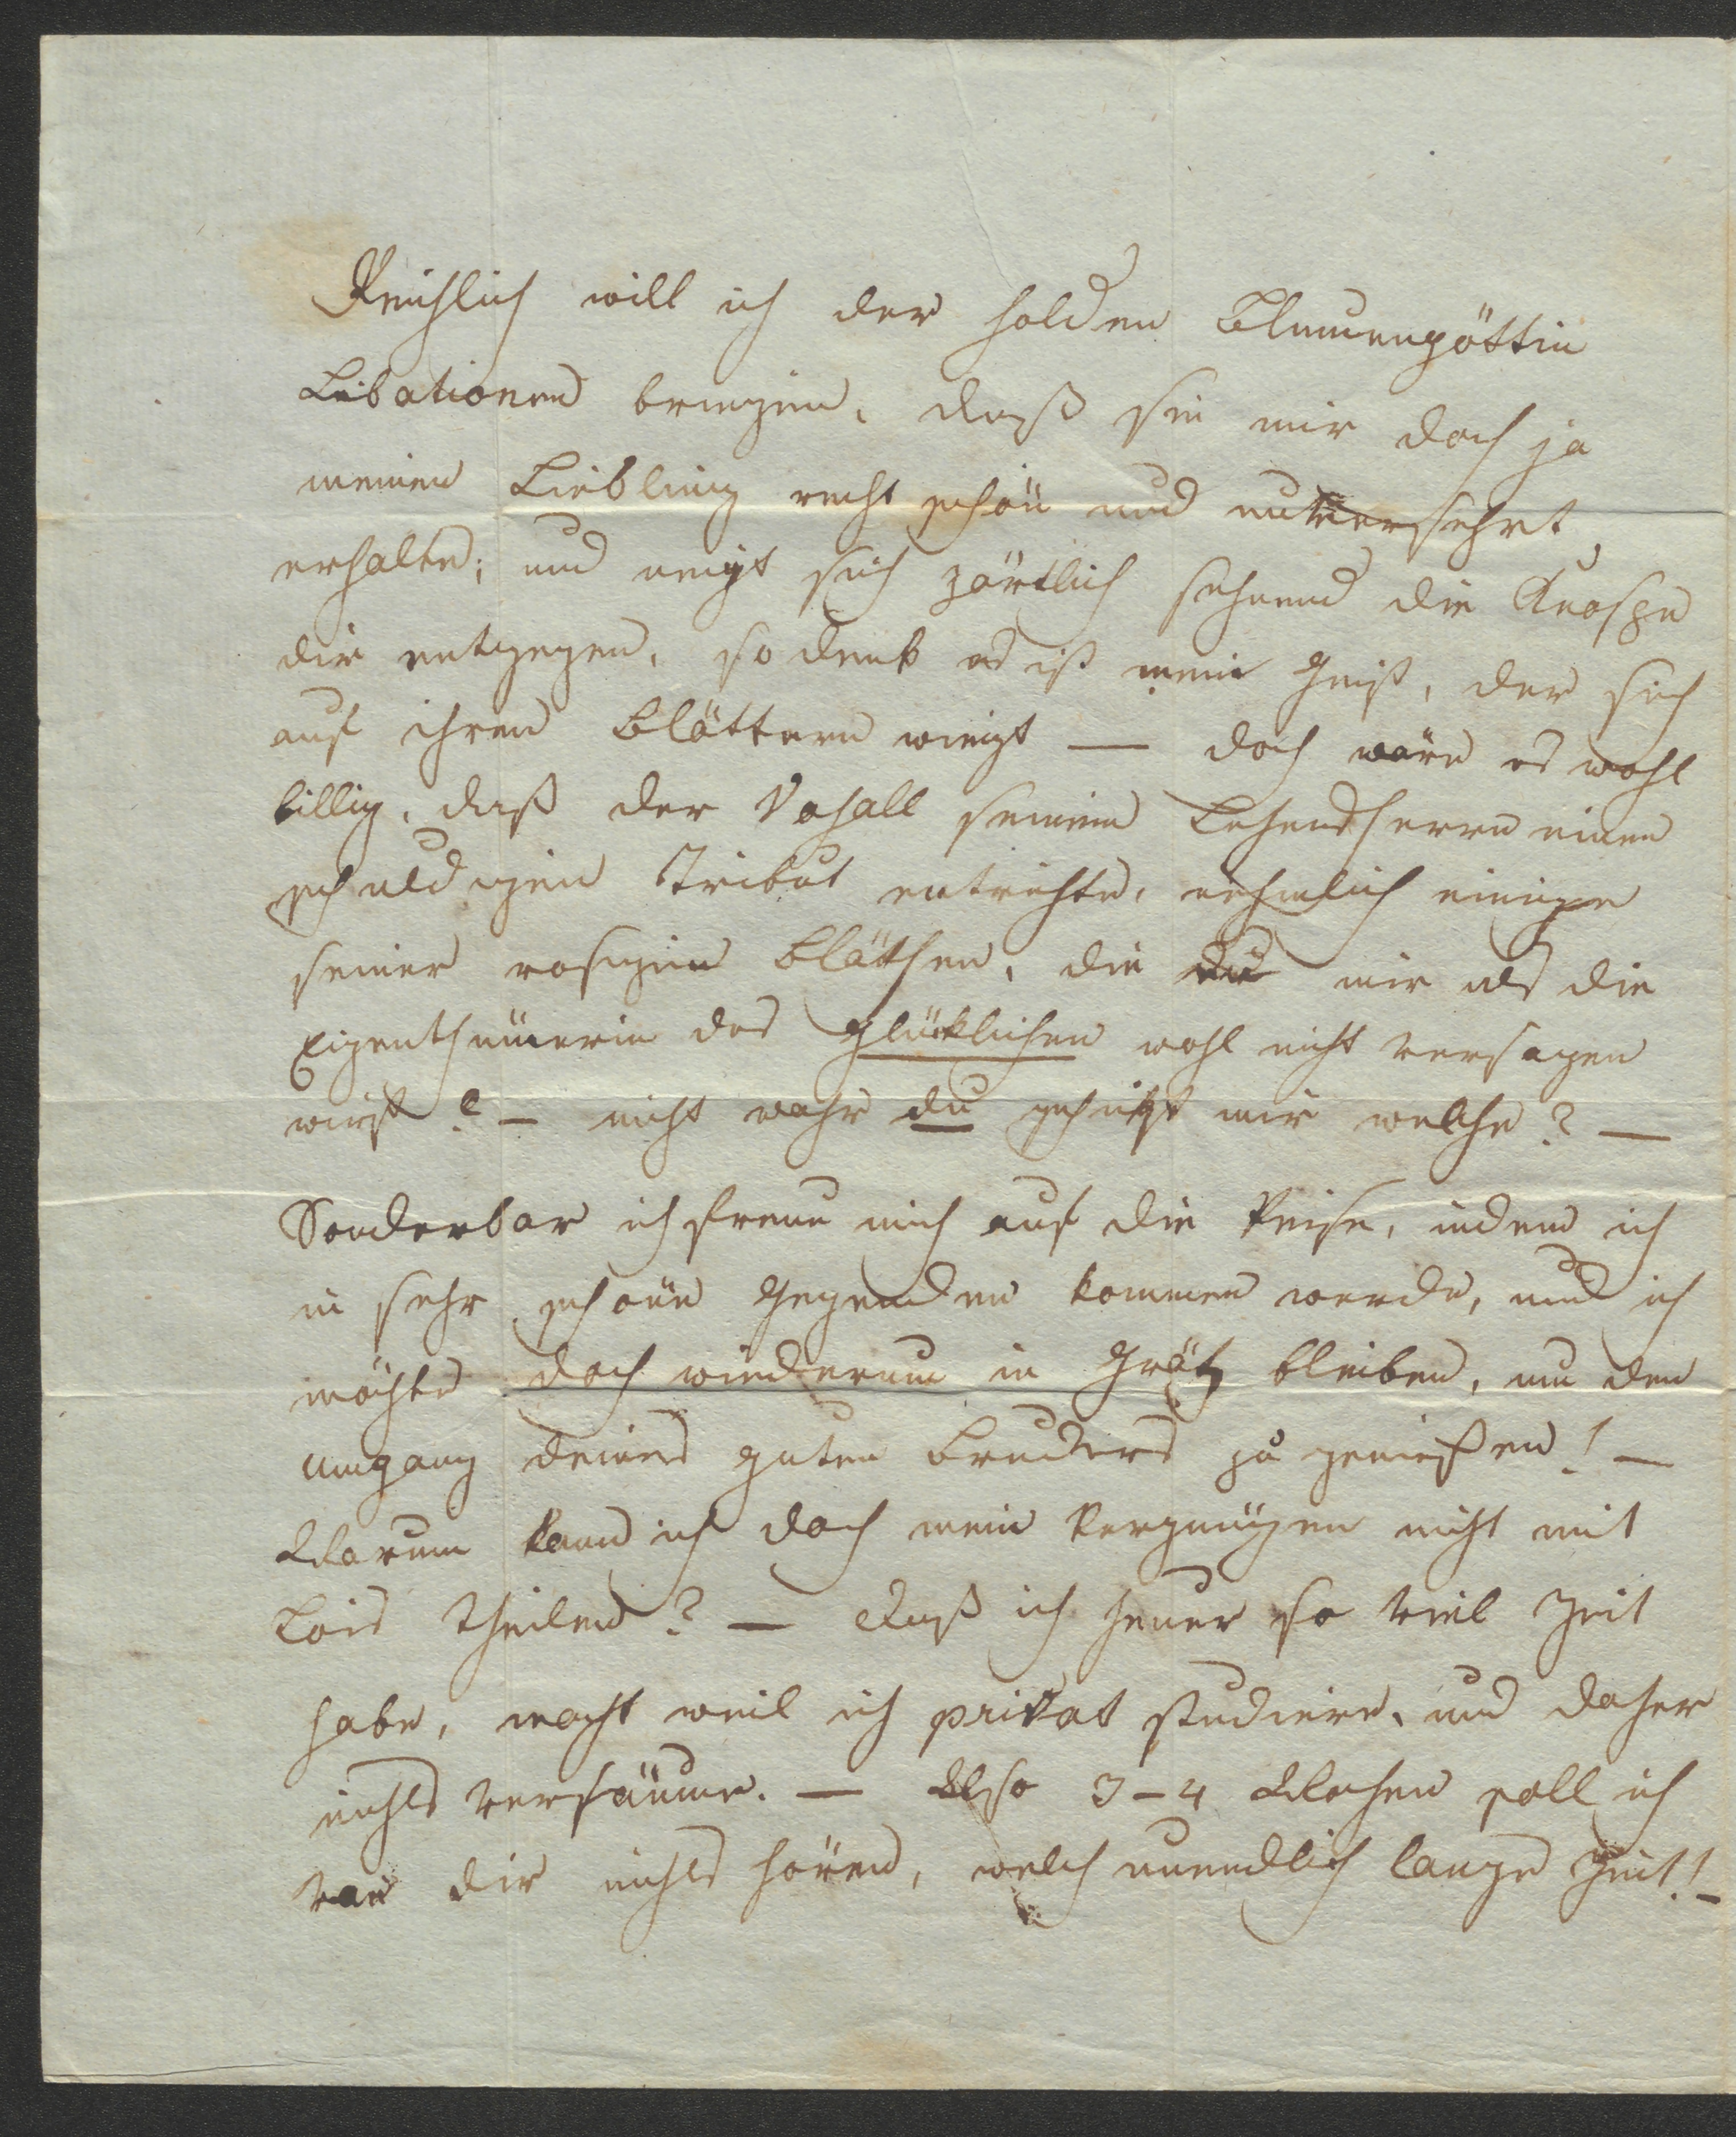 Reichlich will ich der holden Blumengöttin
Libationen bringen, daß sie mir doch ja
meinen Liebling recht schön und unversehrt
erhalte; und neigt sich zärtlich sehnend die Knospe
dir entgegen, so denk es ist mein Geist, der sich
auf ihren Blättern wiegt — doch wäre es wohl
billig, daß der Vasall seinem Lehensherrn einen
schuldigen Tribut entrichte, nehmlich einige
seiner rosigen Blättchen, die du mir als die
Eigenthümerin des Glücklichen wohl nicht versagen
wirst? — nicht wahr du schickst mir welche? —
Sonderbar ich freue mich auf die Reise, indem ich
in sehr schöne Gegenden kommen werde, und ich
möchte doch wiederum in Grätz bleiben, um den
Umgang deines guten Bruders zu genießen! —
Warum kann ich doch mein Vergnügen nicht mit
Lois theilen? — daß ich heuer so viel Zeit
habe, macht weil ich privat studiere, und daher
nichts versäume. — Also 3–4 Wochen soll ich
von dir nichts hören, welch unendlich lange Zeit! —